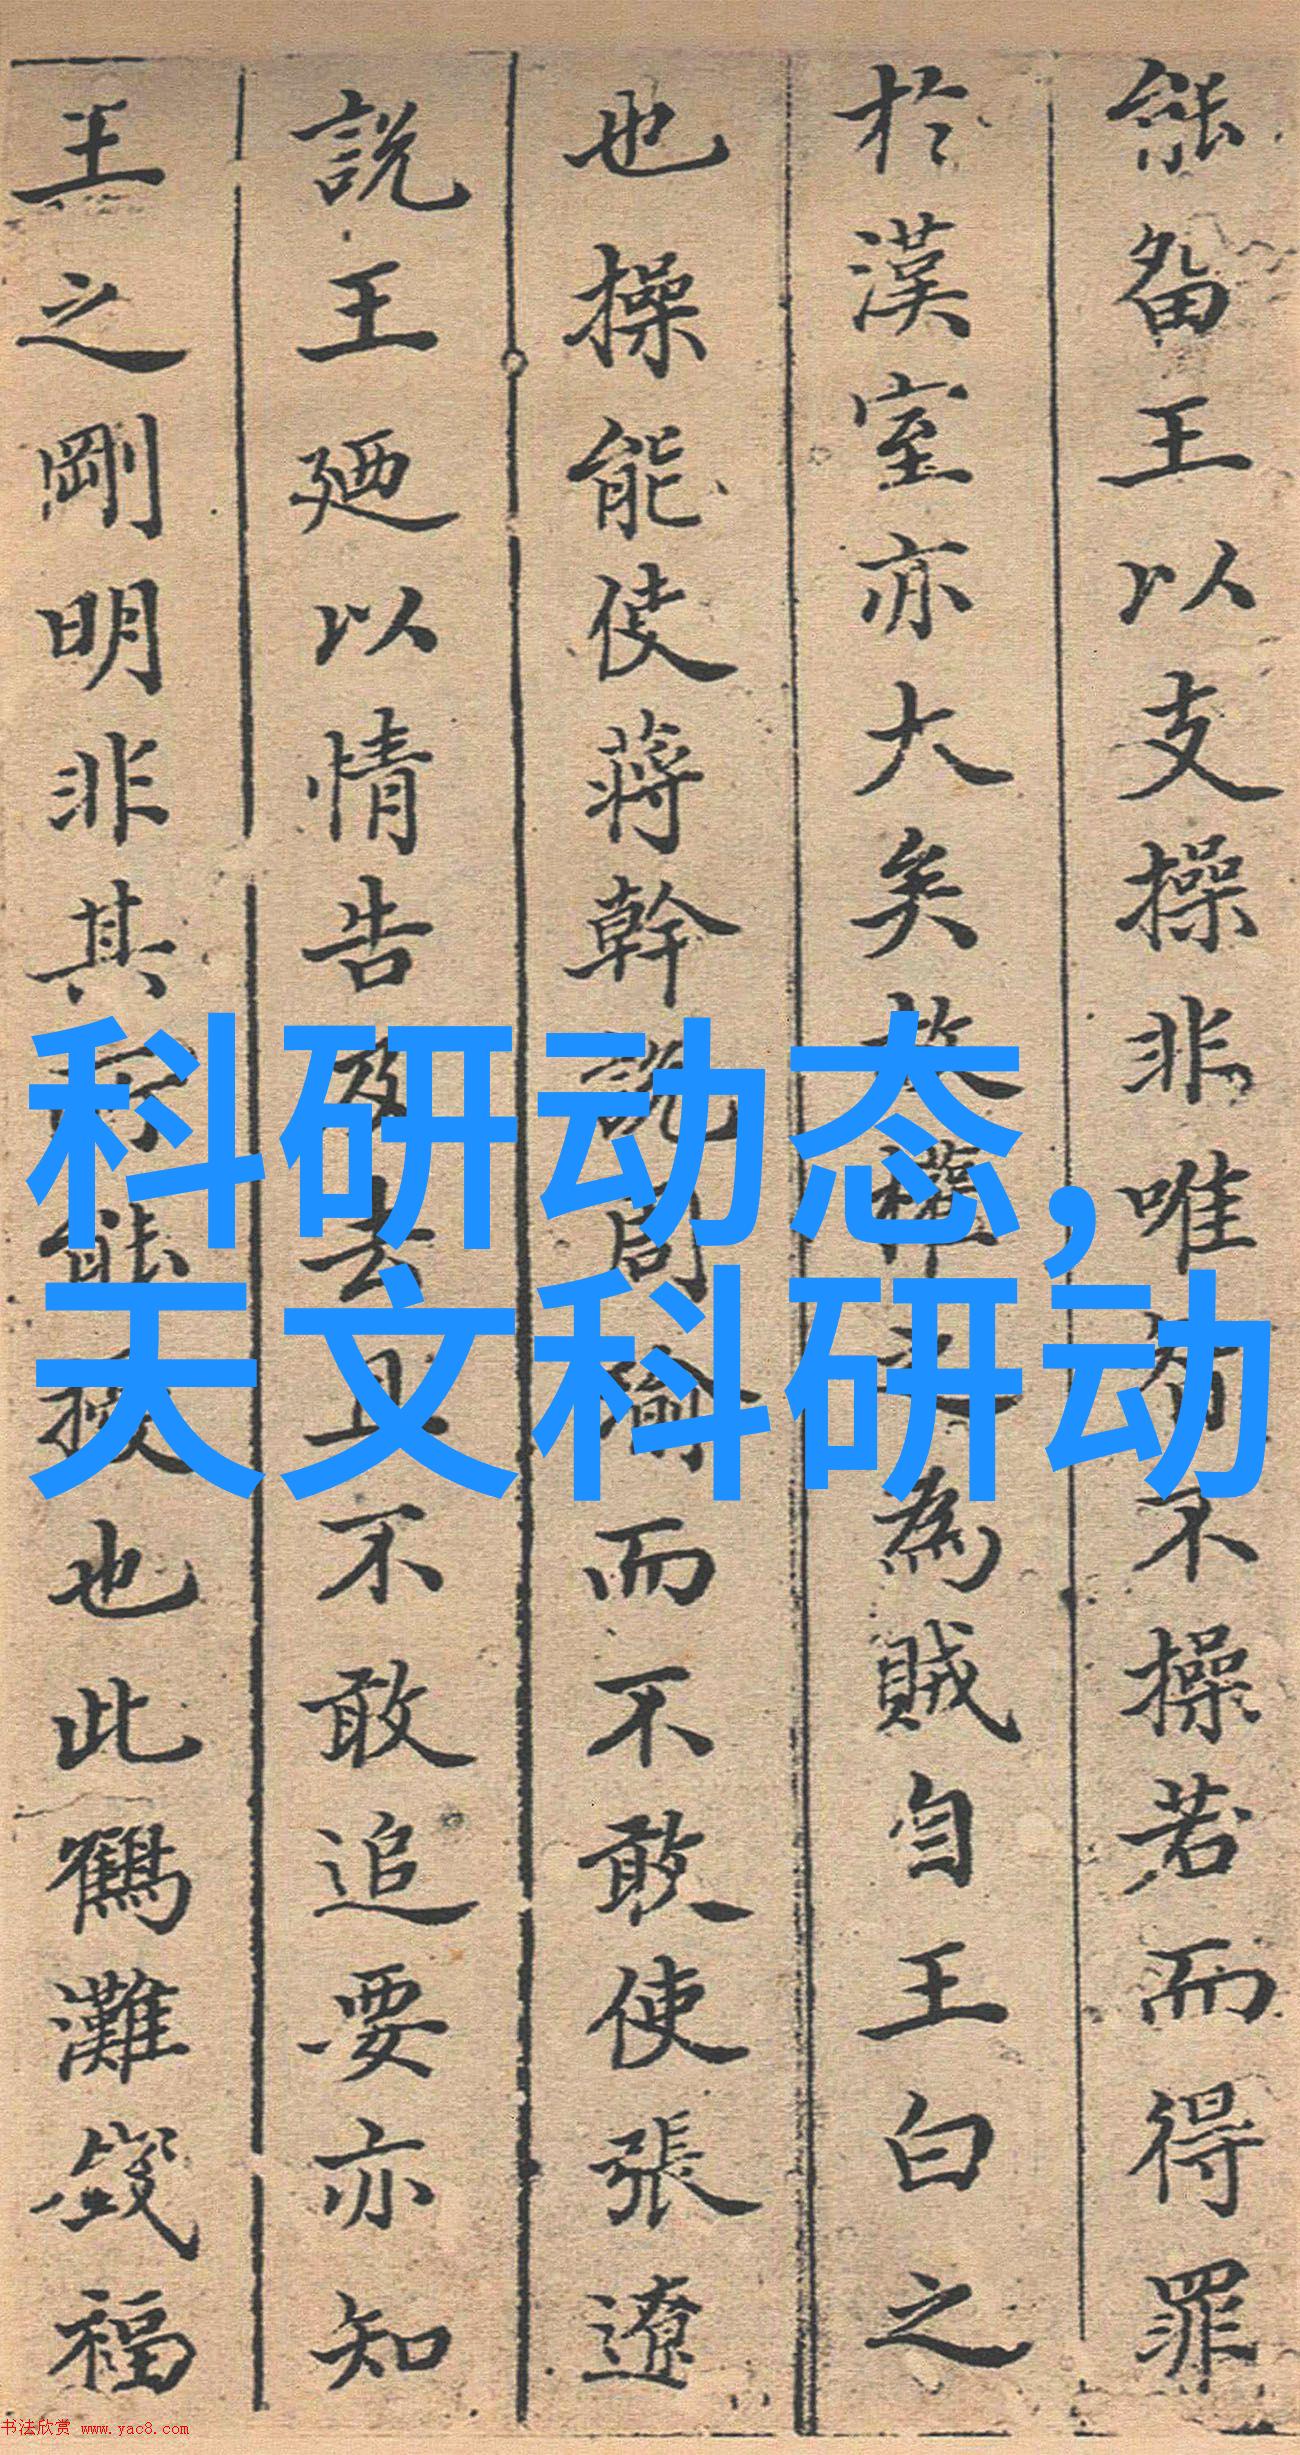 能留王以支操非唯有不操若而得罪
於漢室亦大矣故權之為賊自王白之
也操能使蔣幹說周瑜而不敢使張遼
說王廼以情告及去且不敢追要亦知
王之剛明非其所能揆也此鶴灘錢福
科研动态，
天文科研动
书法欣赏 www.yac8.com